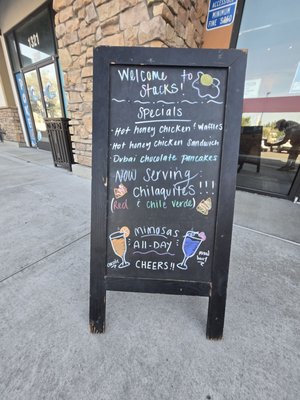 1321
MINIMUM FINE
Welcome to
Stacks!
Specials
• Hot honey chicken & waffles
• Hot honey Chicken Sandwich
• Dubai chocolate pancakes
Now Serving:
Chilaquiles!!!
(Red & chile verde)
Mimosas
All-Day
CHEERS!!